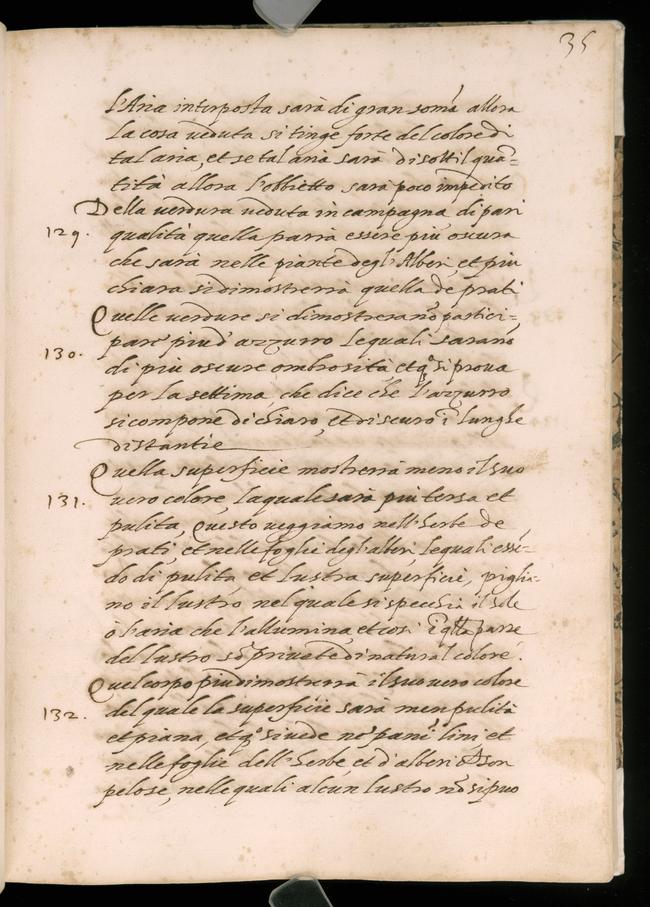 35
l'Aria interposta sarà di gran somà allora
la cosa veduta si tinge forte del colore di
tal aria, et se tal aria sarà di sottil quã=
tità allora l'obbietto sarà poco impedito
Della verdura veduta in campagna di pari
129. qualità quella parrà essere più oscura
che sarà nelle piante degl'Alberi, et più
chiara si dimostrerrà quella de prati
Quelle verdure si dimostrerano partici=
pare più d'azzurro lequali sarano
130. di più oscure ombrosità, et qº si prova
per la settima, che dice che l'azzurro
si compone di chiaro, et di scuro ĩ lunghe
distantie
Quella superficie mostrerrà meno il suo
131. vero colore, laquale sarà più tersa et
pulita, Questo veggiamo nell'herbe de
prati, et nelle foglie degl'alberi, lequali essẽ=
do di pulita, et lustra superficie, priglia=
no il lustro nel quale si specchia il sole
ò l'aria che l'allumina, et cosi ĩ qlla parte
del lustro sõ private di natural colore.
Quel corpo più dimostrerrà il suo vero colore
132. del quale la superficie sarà men pulità
et piana, et qº si vede ne' pani lini, et
nelle foglie dell'herbe, et d'alberi che son
pelose, nelle quali alcun lustro nõ si può